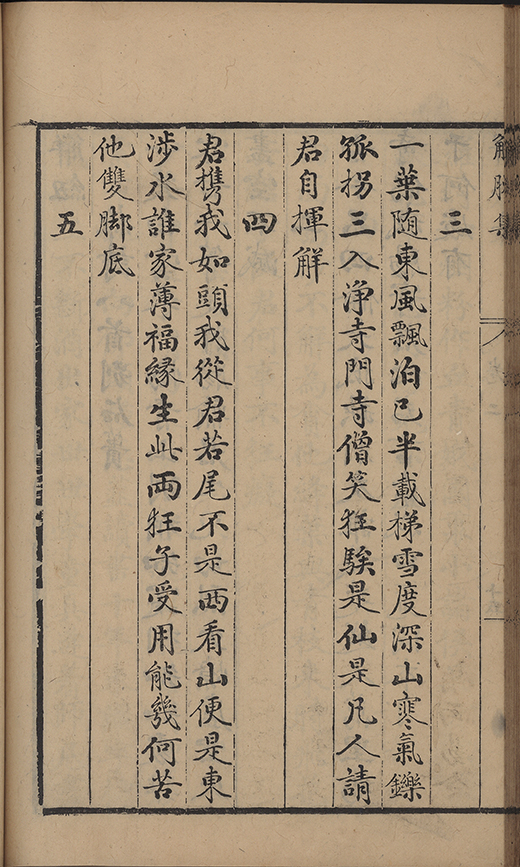 解脫集
三
一葉随東風飄泊已半載梯雪度深山寒氣鑠
孤拐三入浄寺門寺僧笑狂騃是仙是凡人請
君自揮解
四
君携我如頭我從君若尾不是西看山便是東
涉水誰家薄福緣生此両狂子受用能幾何苦
他雙脚底
五